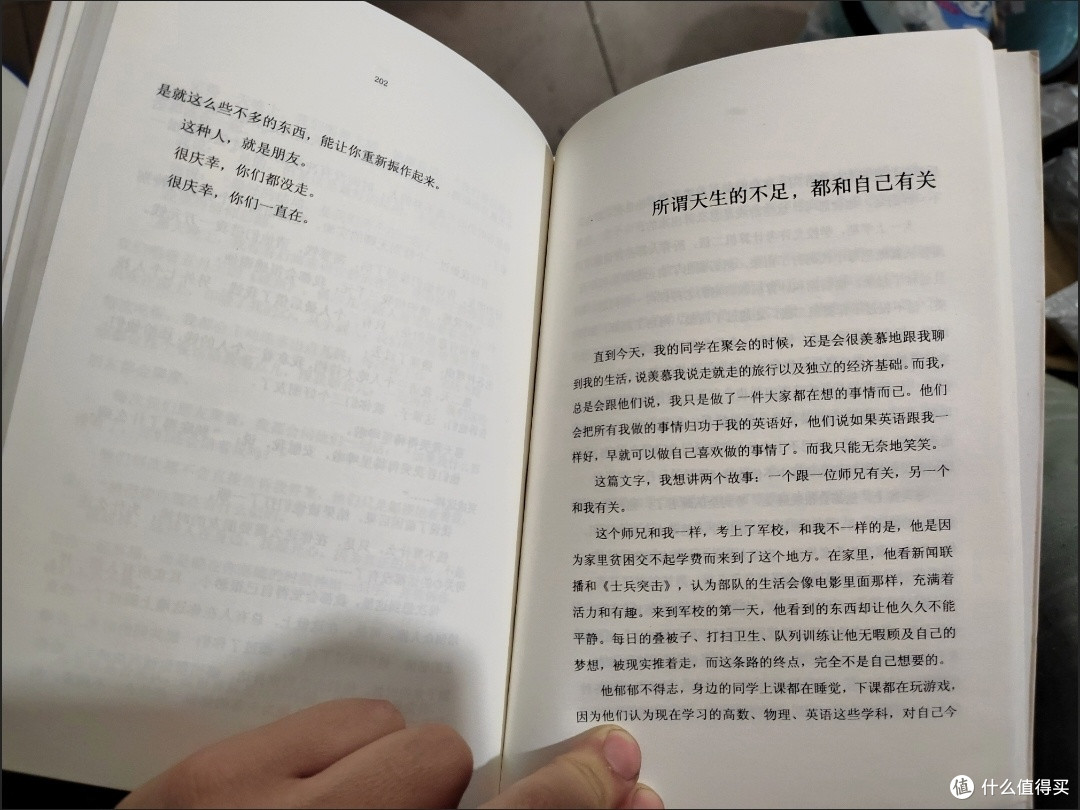 202
是就这么些不多的东西，能让你重新振作起来。
这种人，就是朋友。
很庆幸，你们都没走。
很庆幸，你们一直在。
所谓天生的不足，都和自己有关
直到今天，我的同学在聚会的时候，还是会很羡慕地跟我聊
到我的生活，说羡慕我说走就走的旅行以及独立的经济基础。而我，
总是会跟他们说，我只是做了一件大家都在想的事情而已。他们
会把所有我做的事情归功于我的英语好，他们说如果英语跟我一
样好，早就可以做自己喜欢做的事情了。而我只能无奈地笑笑。
这篇文字，我想讲两个故事：一个跟一位师兄有关，另一个
和我有关。
这个师兄和我一样，考上了军校，和我不一样的是，他是因
为家里贫困交不起学费而来到了这个地方。在家里，他看新闻联
播和《士兵突击》，认为部队的生活会像电影里面那样，充满着
活力和有趣。来到军校的第一天，他看到的东西却让他久久不能
平静。每日的叠被子、打扫卫生、队列训练让他无暇顾及自己的
梦想，被现实推着走，而这条路的终点，完全不是自己想要的。
他郁郁不得志，身边的同学上课都在睡觉，下课都在玩游戏，
因为他们认为现在学习的高数、物理、英语这些学科，对自己今
值 什么值得买